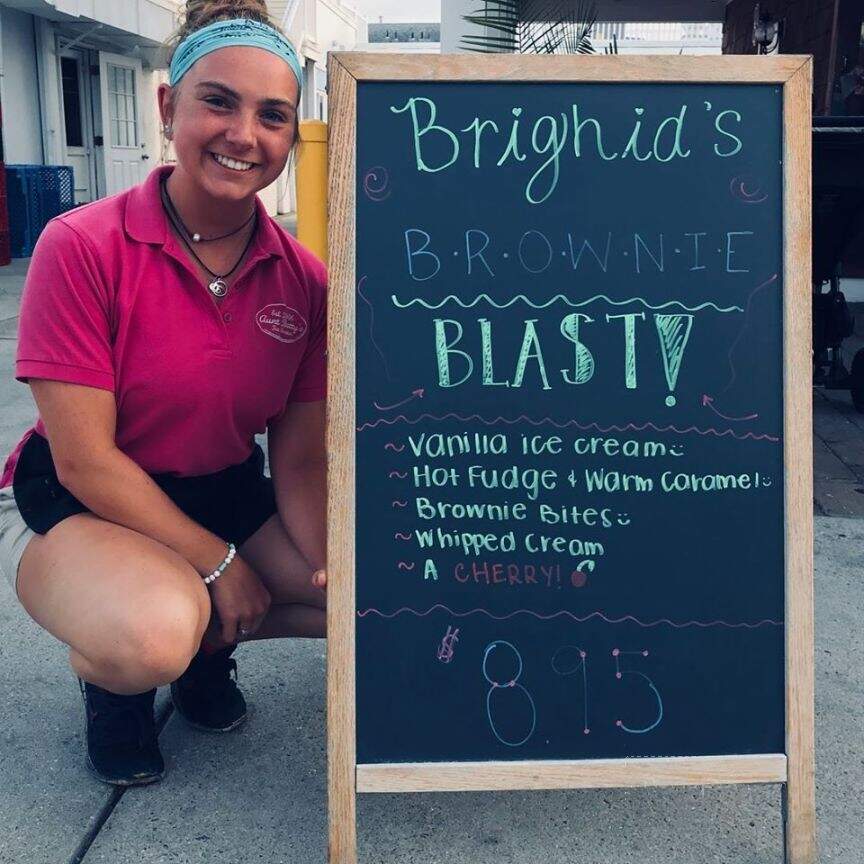 Brighid's
B·R·O·W·N·I·E
BLAST!
~ Vanilla ice cream
~ Hot Fudge & Warm Caramel
~ Brownie Bites
~ Whipped Cream
~ A CHERRY!
$ 8.95
Aunt Betty's